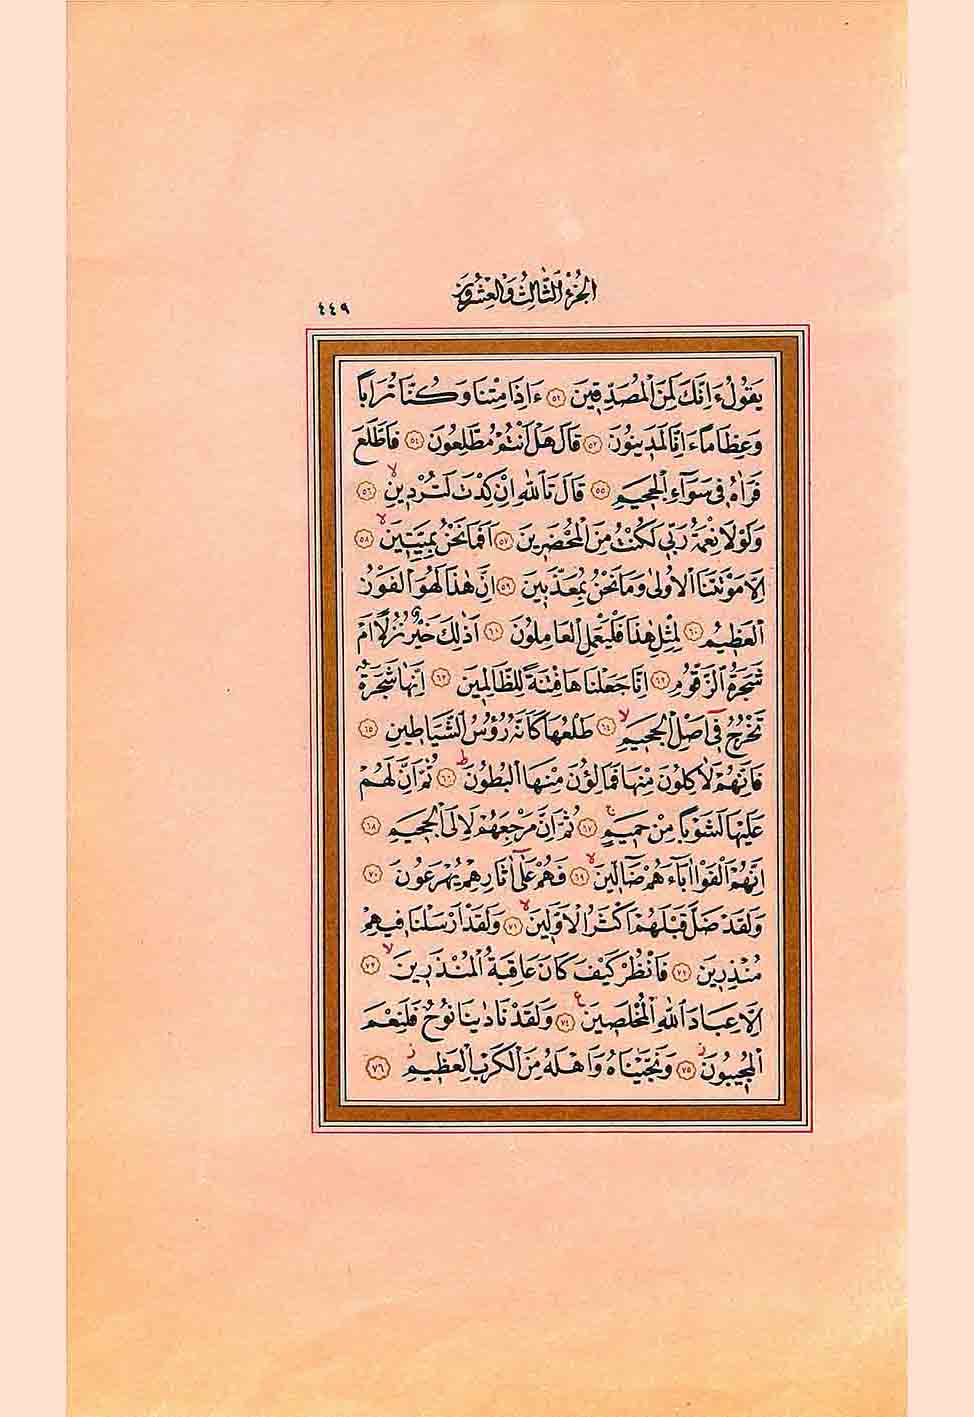 الجزء الثالث والعشرون
٤٤٩
يَقُولُ ءَاِنَّكَ لَمِنَ الْمُصَدِّقِينَ ﴿٥٢﴾ ءَاِذَا مِتْنَا وَكُنَّا تُرَابًا
وَعِظَامًا ءَاِنَّا لَمَدِينُونَ ﴿٥٣﴾ قَالَ هَلْ اَنْتُمْ مُطَّلِعُونَ ﴿٥٤﴾ فَاطَّلَعَ
فَرَاٰهُ فِي سَوَٓاءِ الْجَحِيمِ ﴿٥٥﴾ قَالَ تَاللّٰهِ اِنْ كِدْتَ لَتُرْدِينِ ﴿٥٦﴾
وَلَوْلَا نِعْمَةُ رَبِّي لَكُنْتُ مِنَ الْمُحْضَرِينَ ﴿٥٧﴾ اَفَمَا نَحْنُ بِمَيِّتِينَ ﴿٥٨﴾
اِلَّا مَوْتَتَنَا الْاُولٰى وَمَا نَحْنُ بِمُعَذَّبِينَ ﴿٥٩﴾ اِنَّ هٰذَا لَهُوَ الْفَوْزُ
الْعَظِيمُ ﴿٦٠﴾ لِمِثْلِ هٰذَا فَلْيَعْمَلِ الْعَامِلُونَ ﴿٦١﴾ اَذٰلِكَ خَيْرٌ نُزُلًا اَمْ
شَجَرَةُ الزَّقُّومِ ﴿٦٢﴾ اِنَّا جَعَلْنَاهَا فِتْنَةً لِلظَّالِمِينَ ﴿٦٣﴾ اِنَّهَا شَجَرَةٌ
تَخْرُجُ فِٓي اَصْلِ الْجَحِيمِ ﴿٦٤﴾ طَلْعُهَا كَاَنَّهُ رُؤُسُ الشَّيَاطِينِ ﴿٦٥﴾
فَاِنَّهُمْ لَاٰكِلُونَ مِنْهَا فَمَالِؤُنَ مِنْهَا الْبُطُونَ ﴿٦٦﴾ ثُمَّ اِنَّ لَهُمْ
عَلَيْهَا لَشَوْبًا مِنْ حَمِيمٍ ﴿٦٧﴾ ثُمَّ اِنَّ مَرْجِعَهُمْ لَاِلَى الْجَحِيمِ ﴿٦٨﴾
اِنَّهُمْ اَلْفَوْا اٰبَٓاءَهُمْ ضَٓالِّينَ ﴿٦٩﴾ فَهُمْ عَلٰٓى اٰثَارِهِمْ يُهْرَعُونَ ﴿٧٠﴾
وَلَقَدْ ضَلَّ قَبْلَهُمْ اَكْثَرُ الْاَوَّلِينَ ﴿٧١﴾ وَلَقَدْ اَرْسَلْنَا فِيهِمْ
مُنْذِرِينَ ﴿٧٢﴾ فَانْظُرْ كَيْفَ كَانَ عَاقِبَةُ الْمُنْذَرِينَ ﴿٧٣﴾
اِلَّا عِبَادَ اللّٰهِ الْمُخْلَصِينَ ﴿٧٤﴾ وَلَقَدْ نَادٰينَا نُوحٌ فَلَنِعْمَ
الْمُجِيبُونَ ﴿٧٥﴾ وَنَجَّيْنَاهُ وَاَهْلَهُ مِنَ الْكَرْبِ الْعَظِيمِ ﴿٧٦﴾